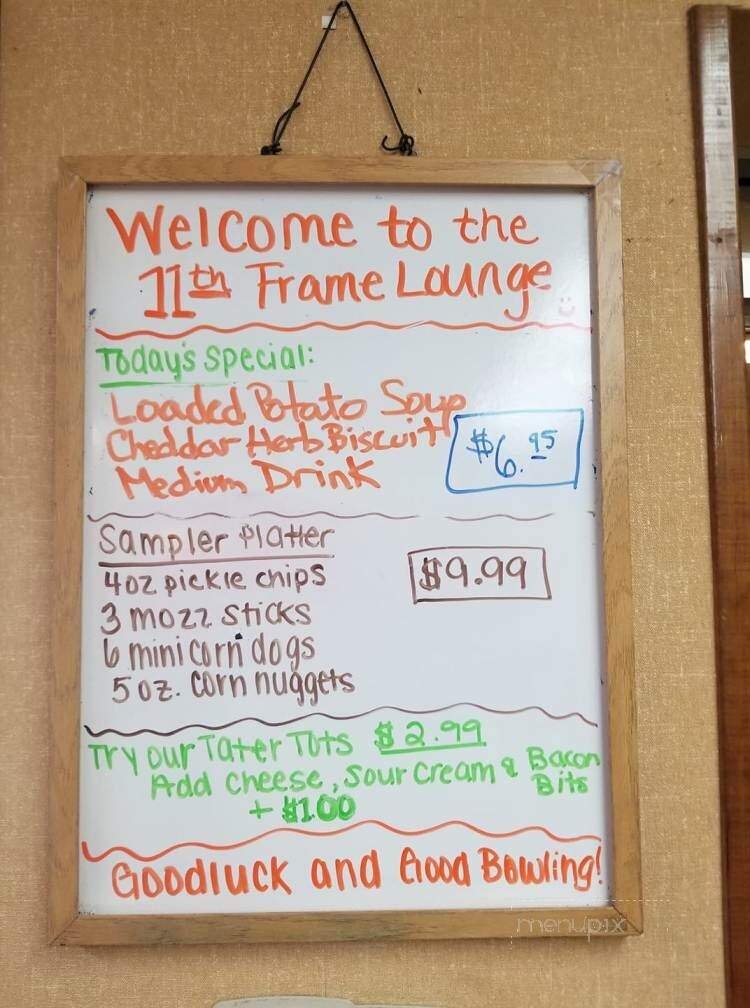 Welcome to the
11th Frame Lounge
Today's Special:
Loaded Potato Soup
Cheddar Herb Biscuit
Medium Drink
$6.95
Sampler Platter
$9.99
4oz pickle chips
3 mozz sticks
6 mini corn dogs
5 oz. corn nuggets
Try our Tater Tots $2.99
Add cheese, sour cream & Bacon Bits
+ $1.00
Goodluck and Good Bowling!
menupix